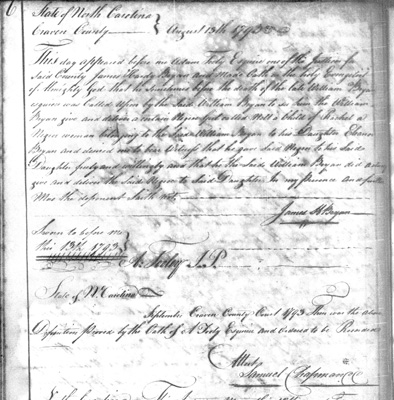 State of North Carolina
Craven County August 13th 1793
This day appeared before me Adam Tooly Esquire one of the Justices for
Said County James Bryan and Made Oath on the holy Evangelist
of Almighty God that he Sometime before the death of the late William Bryan
Esquire was Called upon by the Said William Bryan to see him the William
Bryan give and deliver a certain Negroe called Well a Child of Rachel a
Negroe woman belonging to the Said William Bryan to his Daughter Elenor
Bryan and desired me to bear Witness that he gave Said Negroe to his Said
Daughter freely and willingly and that he the Said William Bryan did
give and deliver the Said Negroe to Said Daughter In my presence and further
Was the deponent Saith not
James H Bryan
Sworn to before me
this 13th 1793
A. Tooley J.P.
State of N Carolina
September Craven County Court 1793 Then was the above
Deposition Proved by the Oath of A Tooly Esquire and ordered to be Recorded
Attest
Samuel Chapman